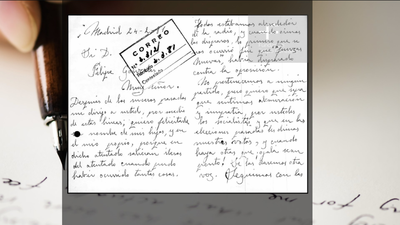 Madrid 24-2-81
Sr. D.
Felipe
Muy Sr. mío:
Después de los sucesos pasados
me dirijo a usted, por medio
de estas líneas, quiero felicitarle
en nombre de mis hijos, y en
el mío propio, porque en
dicho atentado salieran ilesos
del atentado cuando pudo
haber ocurrido tantas cosas.
CORREO
Nº
Contestado
Todos estábamos alrededor
de la radio, y cuando oímos
los disparos, lo primero que
nos ocurrió fue que "fuerzas
habían disparado
contra la oposición.
No pertenecemos a ningún
partido, pero quiero que sepa
que sentimos admiración
y simpatía, por ustedes
los socialistas y que en las
elecciones pasadas le dimos
nuestros votos, y cuando
haya otras que ojalá sea
pronto! Se las daremos otra
vez. ¡Seguimos con las